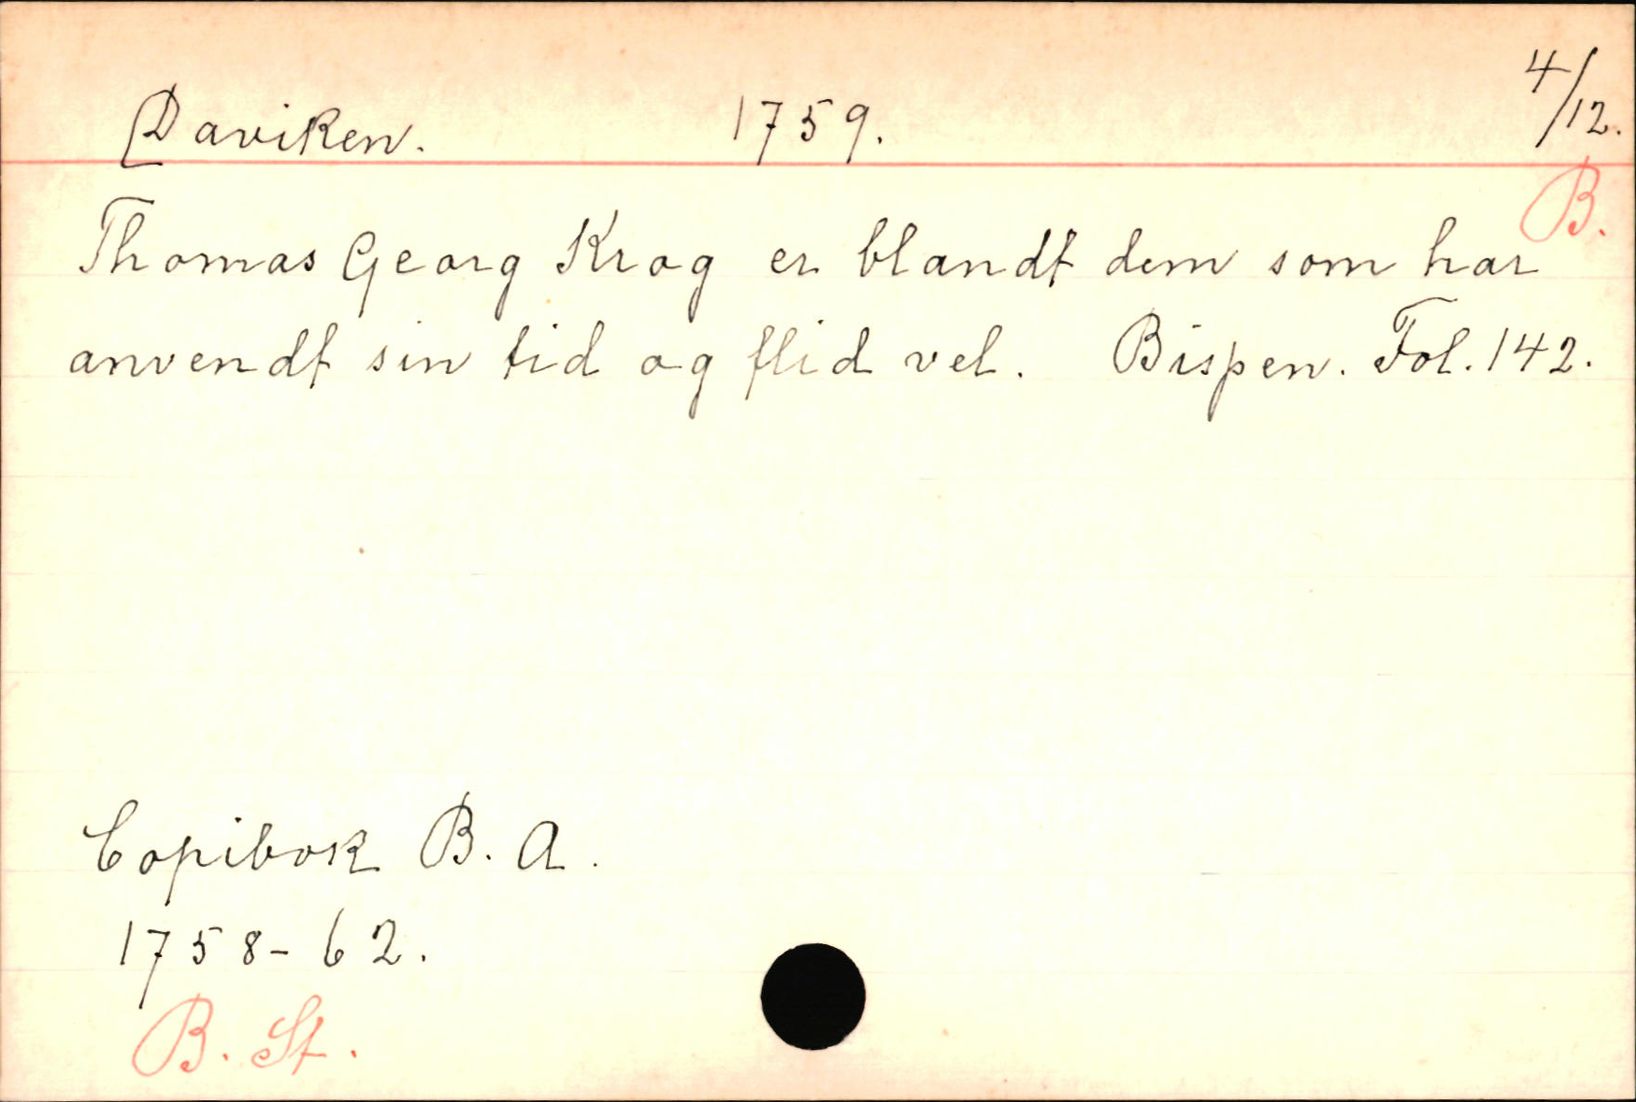 Daviken. 1759. 4/12.
B.
Thomas Georg Krog er blandt dem som har
anvendt sin tid og flid vel. Bispen. Fol. 142.
Copibok B. A.
1758-62.
B. St.